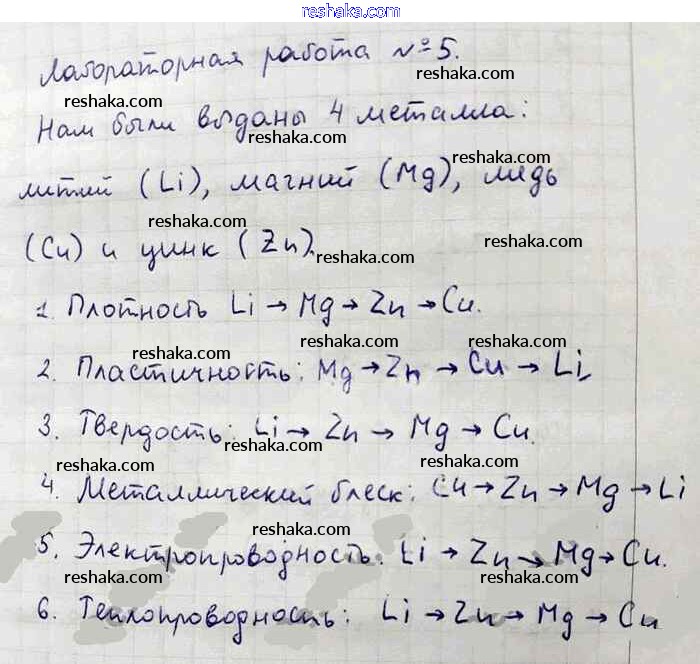 reshaka.com
Лабораторная работа №5.
reshaka.com
reshaka.com
Нам были выданы 4 металла:
reshaka.com
reshaka.com
литий (Li), магний (Mg), медь
reshaka.com
(Cu) и цинк (Zn).
reshaka.com
reshaka.com
1. Плотность Li → Mg → Zn → Cu.
reshaka.com
reshaka.com
reshaka.com
2. Пластичность: Mg → Zn → Cu → Li
reshaka.com
reshaka.com
3. Твердость: Li → Zn → Mg → Cu.
reshaka.com
reshaka.com
reshaka.com
4. Металлический блеск: Cu → Zn → Mg → Li
reshaka.com
5. Электропроводность: Li → Zn → Mg → Cu.
reshaka.com
reshaka.com
reshaka.com
6. Теплопроводность: Li → Zn → Mg → Cu
reshaka.com
reshaka.com